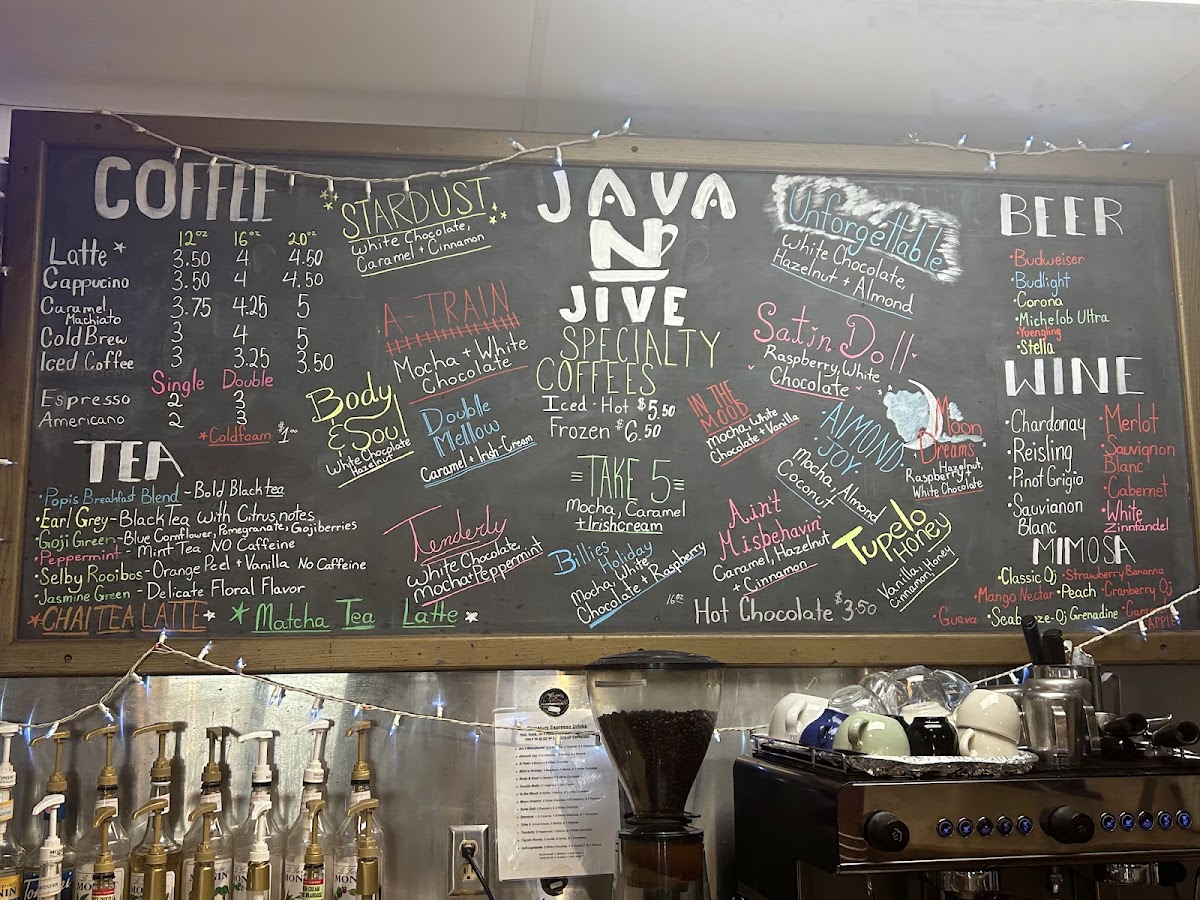 COFFEE
12oz 16oz 20oz
Latte 3.50 4 4.50
Cappucino 3.50 4 4.50
Caramel
Machiato 3.75 4.25 5
Cold Brew 3 4 5
Iced Coffee 3 3.25 3.50
Single Double
Espresso 2 3
Americano 2 3
Coldfoam $1.00
TEA
Popi's Breakfast Blend - Bold Black tea
Earl Grey - Black Tea with Citrus notes
Goji Green - Blue Cornflower, Pomegranate, Gojiberries
Peppermint - Mint Tea NO Caffeine
Selby Rooibos - Orange Peel + Vanilla No Caffeine
Jasmine Green - Delicate Floral Flavor
CHAI TEA LATTE Matcha Tea Latte
STARDUST
White Chocolate,
Caramel + Cinnamon
A-TRAIN
Mocha + White
Chocolate
Body
& Soul
White Chocolate
Hazelnut
Double
Mellow
Caramel + Irish Cream
Tenderly
White Chocolate,
Mocha + Peppermint
JAVA
N
JIVE
SPECIALTY
COFFEES
Iced - Hot $5.50
Frozen $6.50
TAKE 5
Mocha, Caramel
+ Irishcream
Billies
Holiday
Mocha, White
Chocolate + Raspberry
Unforgettable
White Chocolate,
Hazelnut + Almond
Satin Doll
Raspberry, White
Chocolate
IN THE
MOOD
Mocha, White
Chocolate + Vanilla
ALMOND
JOY
Mocha, Almond
Coconut
Moon
Dreams
Hazelnut,
Raspberry +
White Chocolate
Ain't
Misbehavin'
Caramel, Hazelnut
+ Cinnamon
Tupelo
Honey
Vanilla, Honey
Cinnamon
16oz Hot Chocolate $3.50
BEER
Budweiser
Budlight
Corona
Michelob Ultra
Yuengling
Stella
WINE
Chardonay
Reisling
Pinot Grigio
Sauvanion
Blanc
Merlot
Sauvignon
Blanc
Cabernet
White
Zinnfandel
MIMOSA
Classic Oj Strawberry Bananna
Mango Nectar Peach Cranberry Oj
Guava Seabreeze-Oj Grenadine
APPLE